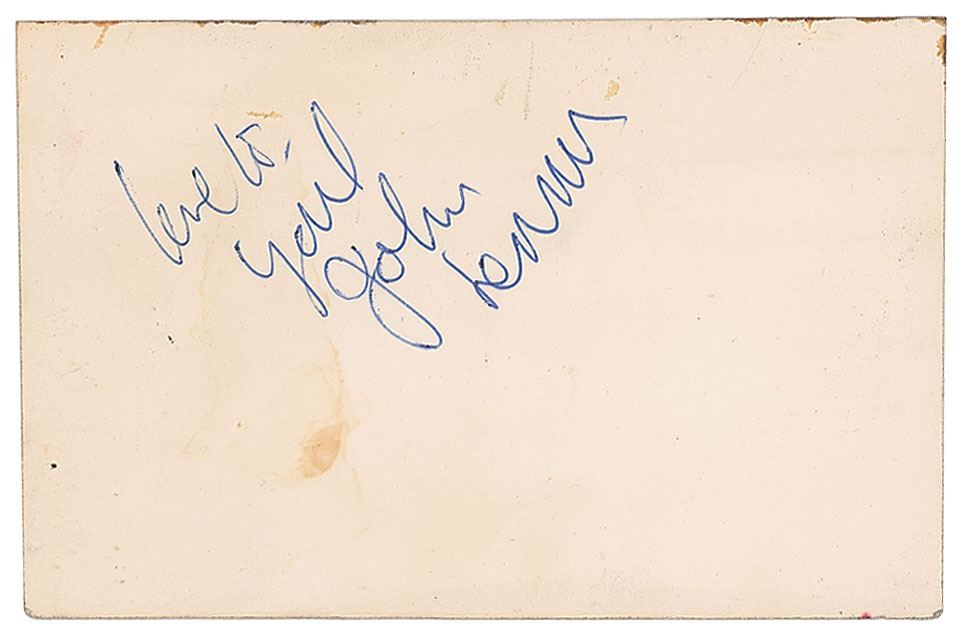 love to.
John
Lennon